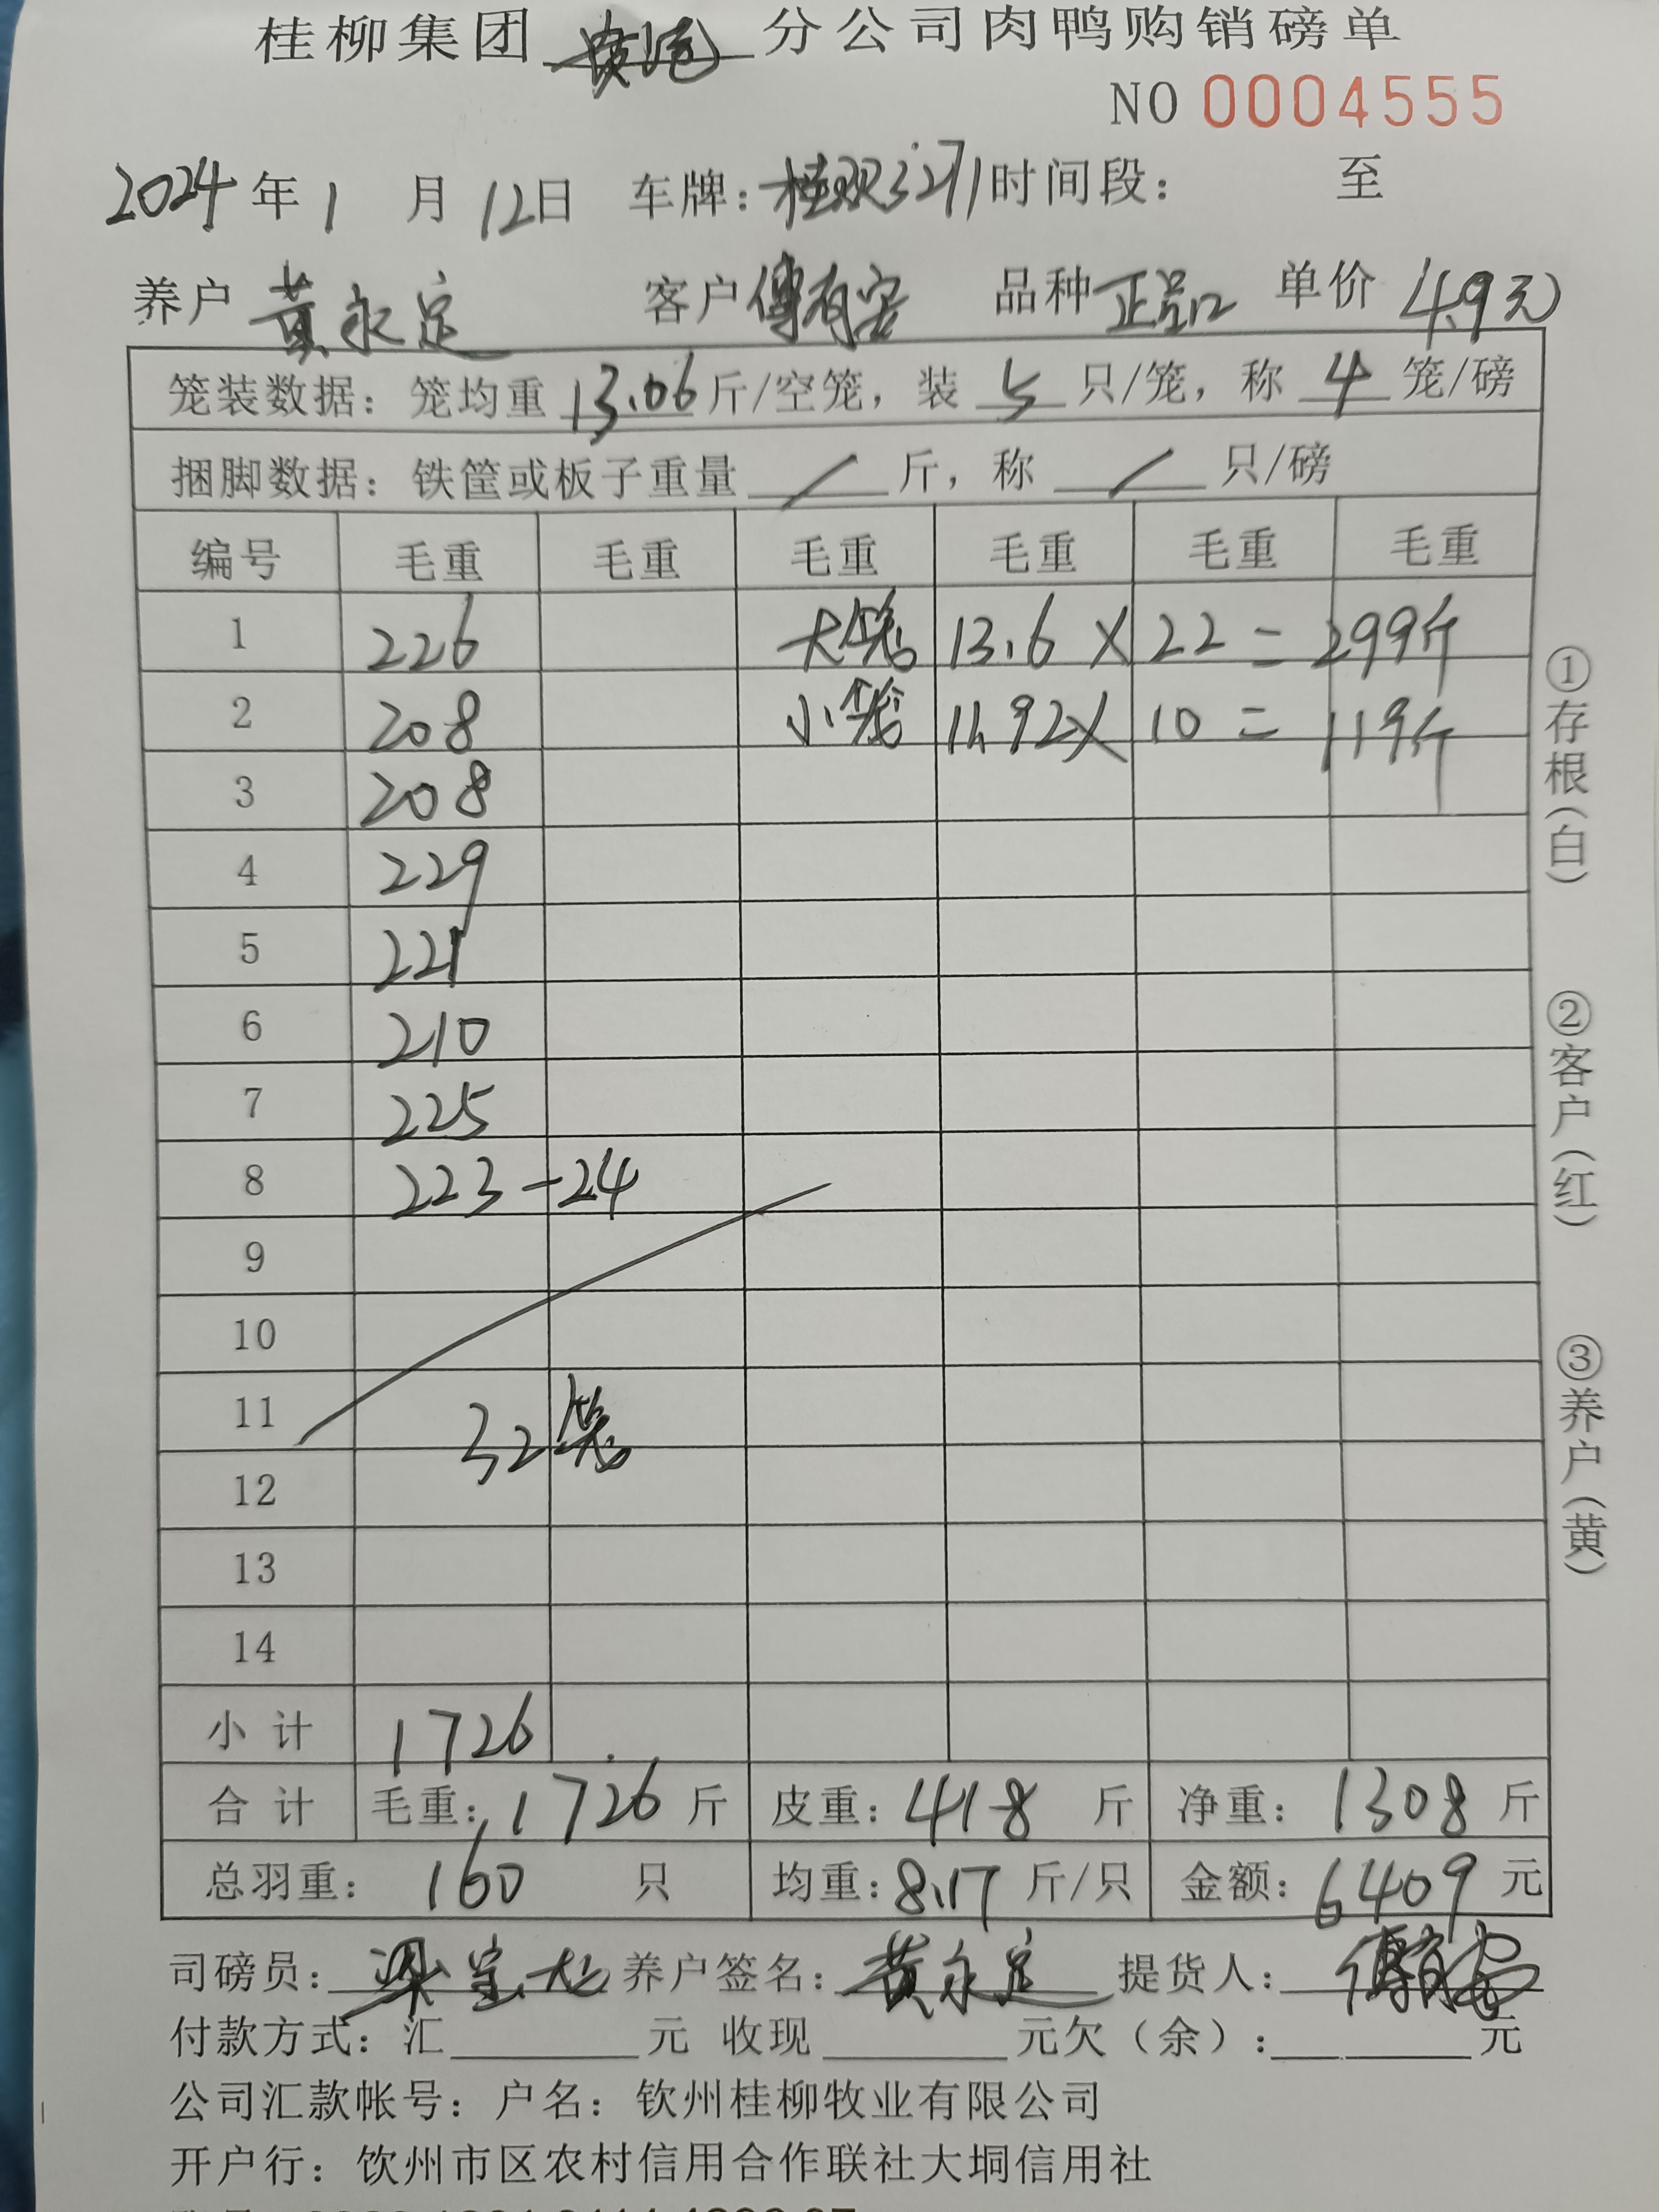 桂柳集团 分公司肉鸭购销磅单
NO 0004555
2024年1月12日 车牌: 时间段: 至
养户 黄永定 客户 傅有容 品种 正品 单价 4.9元
笼装数据: 笼均重 13.06 斤/空笼, 装 5 只/笼, 称 4 笼/磅
捆脚数据: 铁筐或板子重量 / 斤, 称 / 只/磅
编号 毛重 毛重 毛重 毛重 毛重 毛重
1 226 大笼 13.6 × 22 = 299斤
2 208 小笼 11.92 × 10 = 119斤
3 208
4 229
5 221
6 210
7 225
8 223-24
9
10
11 32笼
12
13
14
小计 1726
合计 毛重: 1726 斤 皮重: 418 斤 净重: 1308 斤
总羽重: 160 只 均重: 8.17 斤/只 金额: 6409 元
司磅员: 养户签名: 黄永定 提货人:
付款方式: 汇______元 收现______元欠（余）:______元
公司汇款帐号: 户名: 钦州桂柳牧业有限公司
开户行: 钦州市区农村信用合作联社大垌信用社
①存根(白)
②客户(红)
③养户(黄)